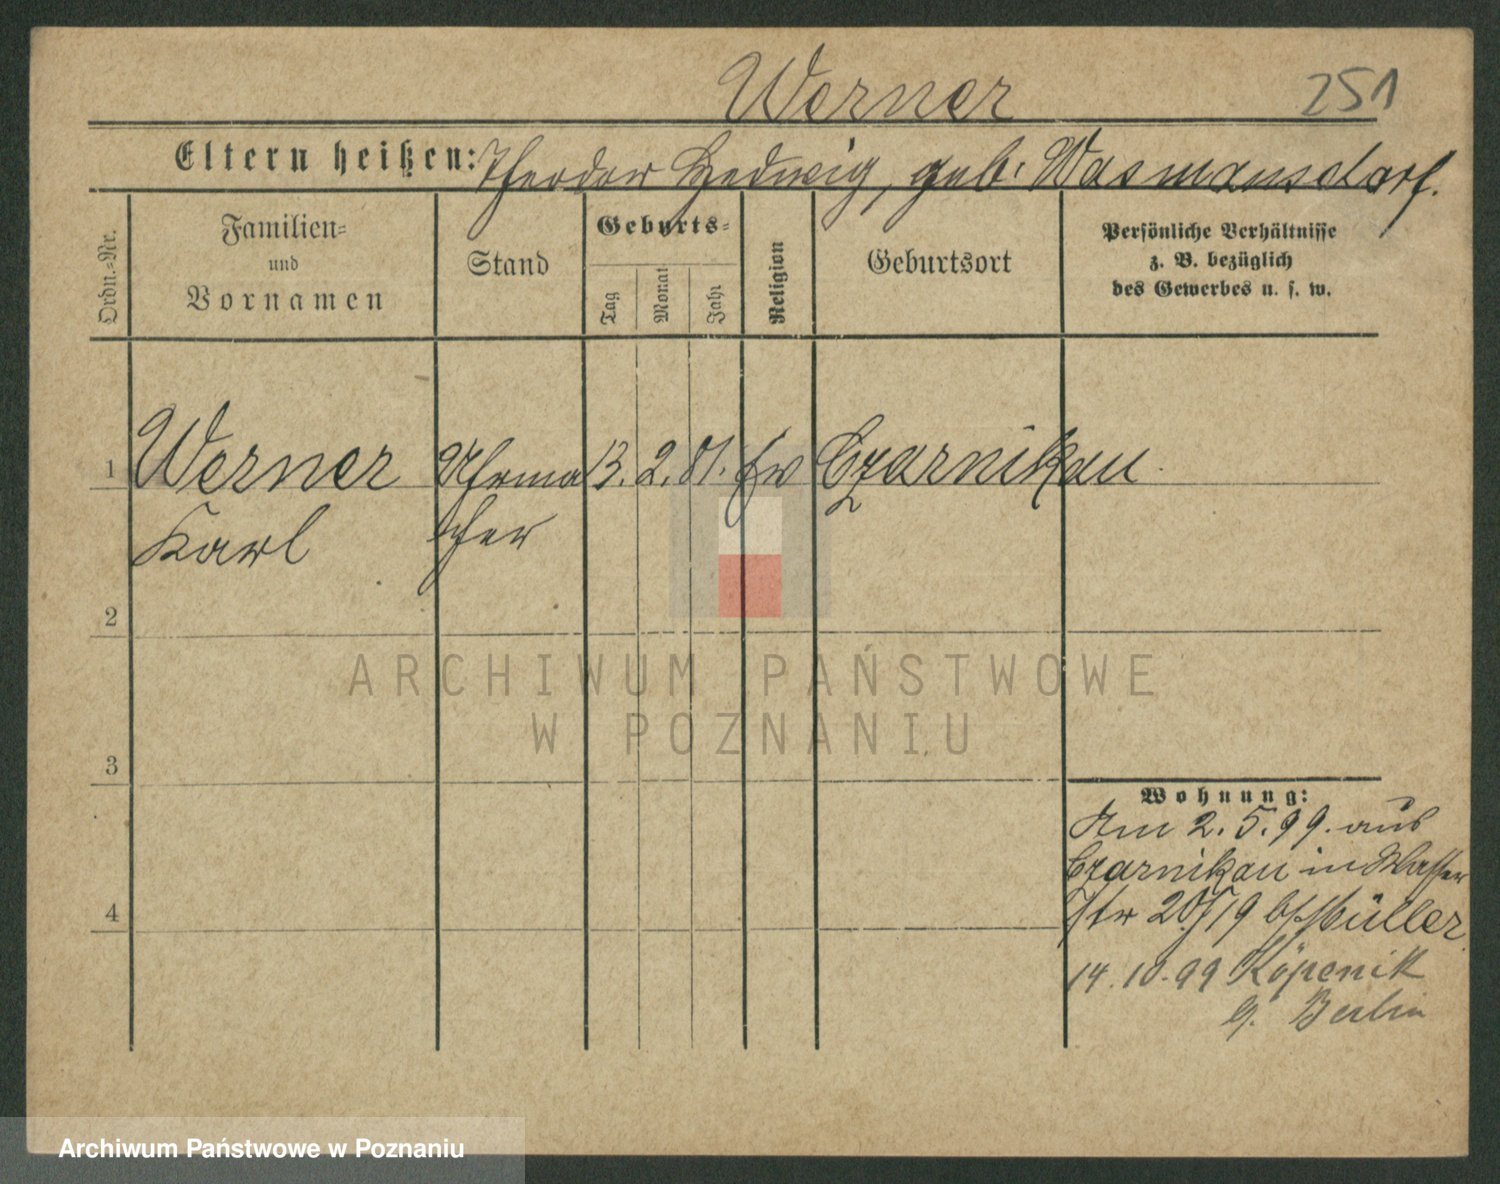 Werner 251
Eltern heißen: Theodor Hedwig, geb. Wasmansdorf.
Ordn.-Nr.
Familien-
und
Vornamen
Stand
Geburts-
Tag
Monat
Jahr
Religion
Geburtsort
Persönliche Verhältnisse
z. B. bezüglich
des Gewerbes u. s. w.
1 Werner Uhrma 13. 2. 81. Ev Czarnikau.
Karl cher
2
3
4
ARCHIWUM PAŃSTWOWE
W POZNANIU
Wohnung:
Am 2. 5. 99. aus
Czarnikau in Wasser
Str 19 b/ Müller.
14. 10. 99 Köpenik
b. Berlin
Archiwum Państwowe w Poznaniu